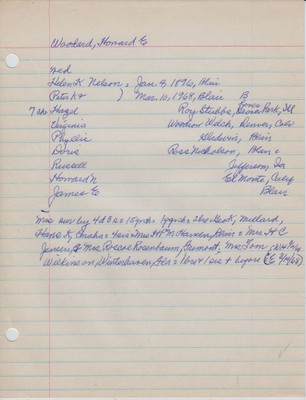 Woodard, Howard E
Wed
Helen K Nelson = Jan. 9, 1896, Blair
(Peter K & ) Mar. 10, 1968, Blair B
7 chs Hazel Roy Stubbs, Grove Park, Ill
Virginia Woodrow Welch, Denver, Colo
Phyllis Gladwin, Blair
Doris Ross Nicholson, Blair
Russell Jefferson, Ia
Howard N El Monte, Calif
James E Blair
Mrs surv by 4 d 3 s = 15 grch = 1 ggrch = 2 bro = Geo K, Millard,
Hans K, Omaha = 4 sis = Mrs H P M Hansen, Blair = Mrs H C
Jensen, & Mrs Roscoe Rosenbaum, Fremont, Mrs Tom
Wilkinson, Winterhaven, Fla = 1 bro & 1 sis & before (E 3/14/68)